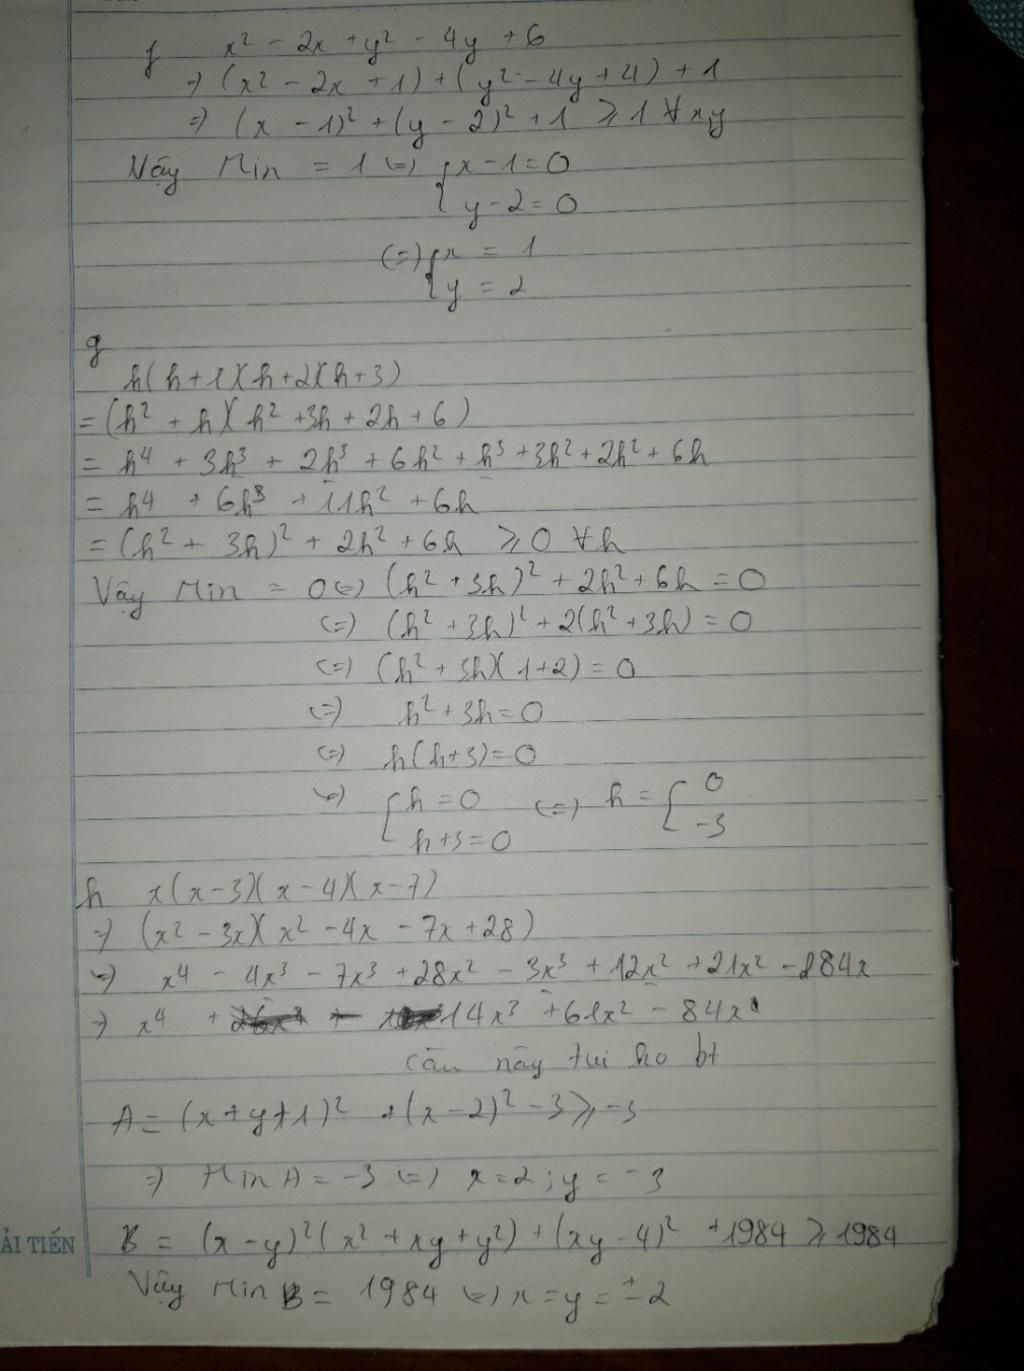 f x² - 2x + y² - 4y + 6
=> (x² - 2x + 1) + (y² - 4y + 4) + 1
=> (x - 1)² + (y - 2)² + 1 ≥ 1 ∀ x,y
Vậy Min = 1 <=> { x - 1 = 0
y - 2 = 0
<=> { x = 1
y = 2
g
h(h+1)(h+2)(h+3)
= (h² + h)(h² + 3h + 2h + 6)
= h⁴ + 3h³ + 2h³ + 6h² + h³ + 3h² + 2h² + 6h
= h⁴ + 6h³ + 11h² + 6h
= (h² + 3h)² + 2h² + 6h ≥ 0 ∀ h
Vậy Min = 0 <=> (h² + 3h)² + 2h² + 6h = 0
<=> (h² + 3h)² + 2(h² + 3h) = 0
<=> (h² + 3h)(1+2) = 0
<=> h² + 3h = 0
<=> h(h+3) = 0
<=> [ h = 0 <=> h = [ 0
h + 3 = 0 -3
h x(x-3)(x-4)(x-7)
=> (x² - 3x)(x² - 4x - 7x + 28)
=> x⁴ - 4x³ - 7x³ + 28x² - 3x³ + 12x² + 21x² - 84x
=> x⁴ + 14x³ + 61x² - 84x
câu này tui ko bt
A = (x + y + 1)² + (x - 2)² - 3 ≥ -3
=> Min A = -3 <=> x = 2 ; y = -3
ẢI TIẾN B = (x - y)²(x² + xy + y²) + (xy - 4)² + 1984 ≥ 1984
Vậy Min B = 1984 <=> x = y = ±2